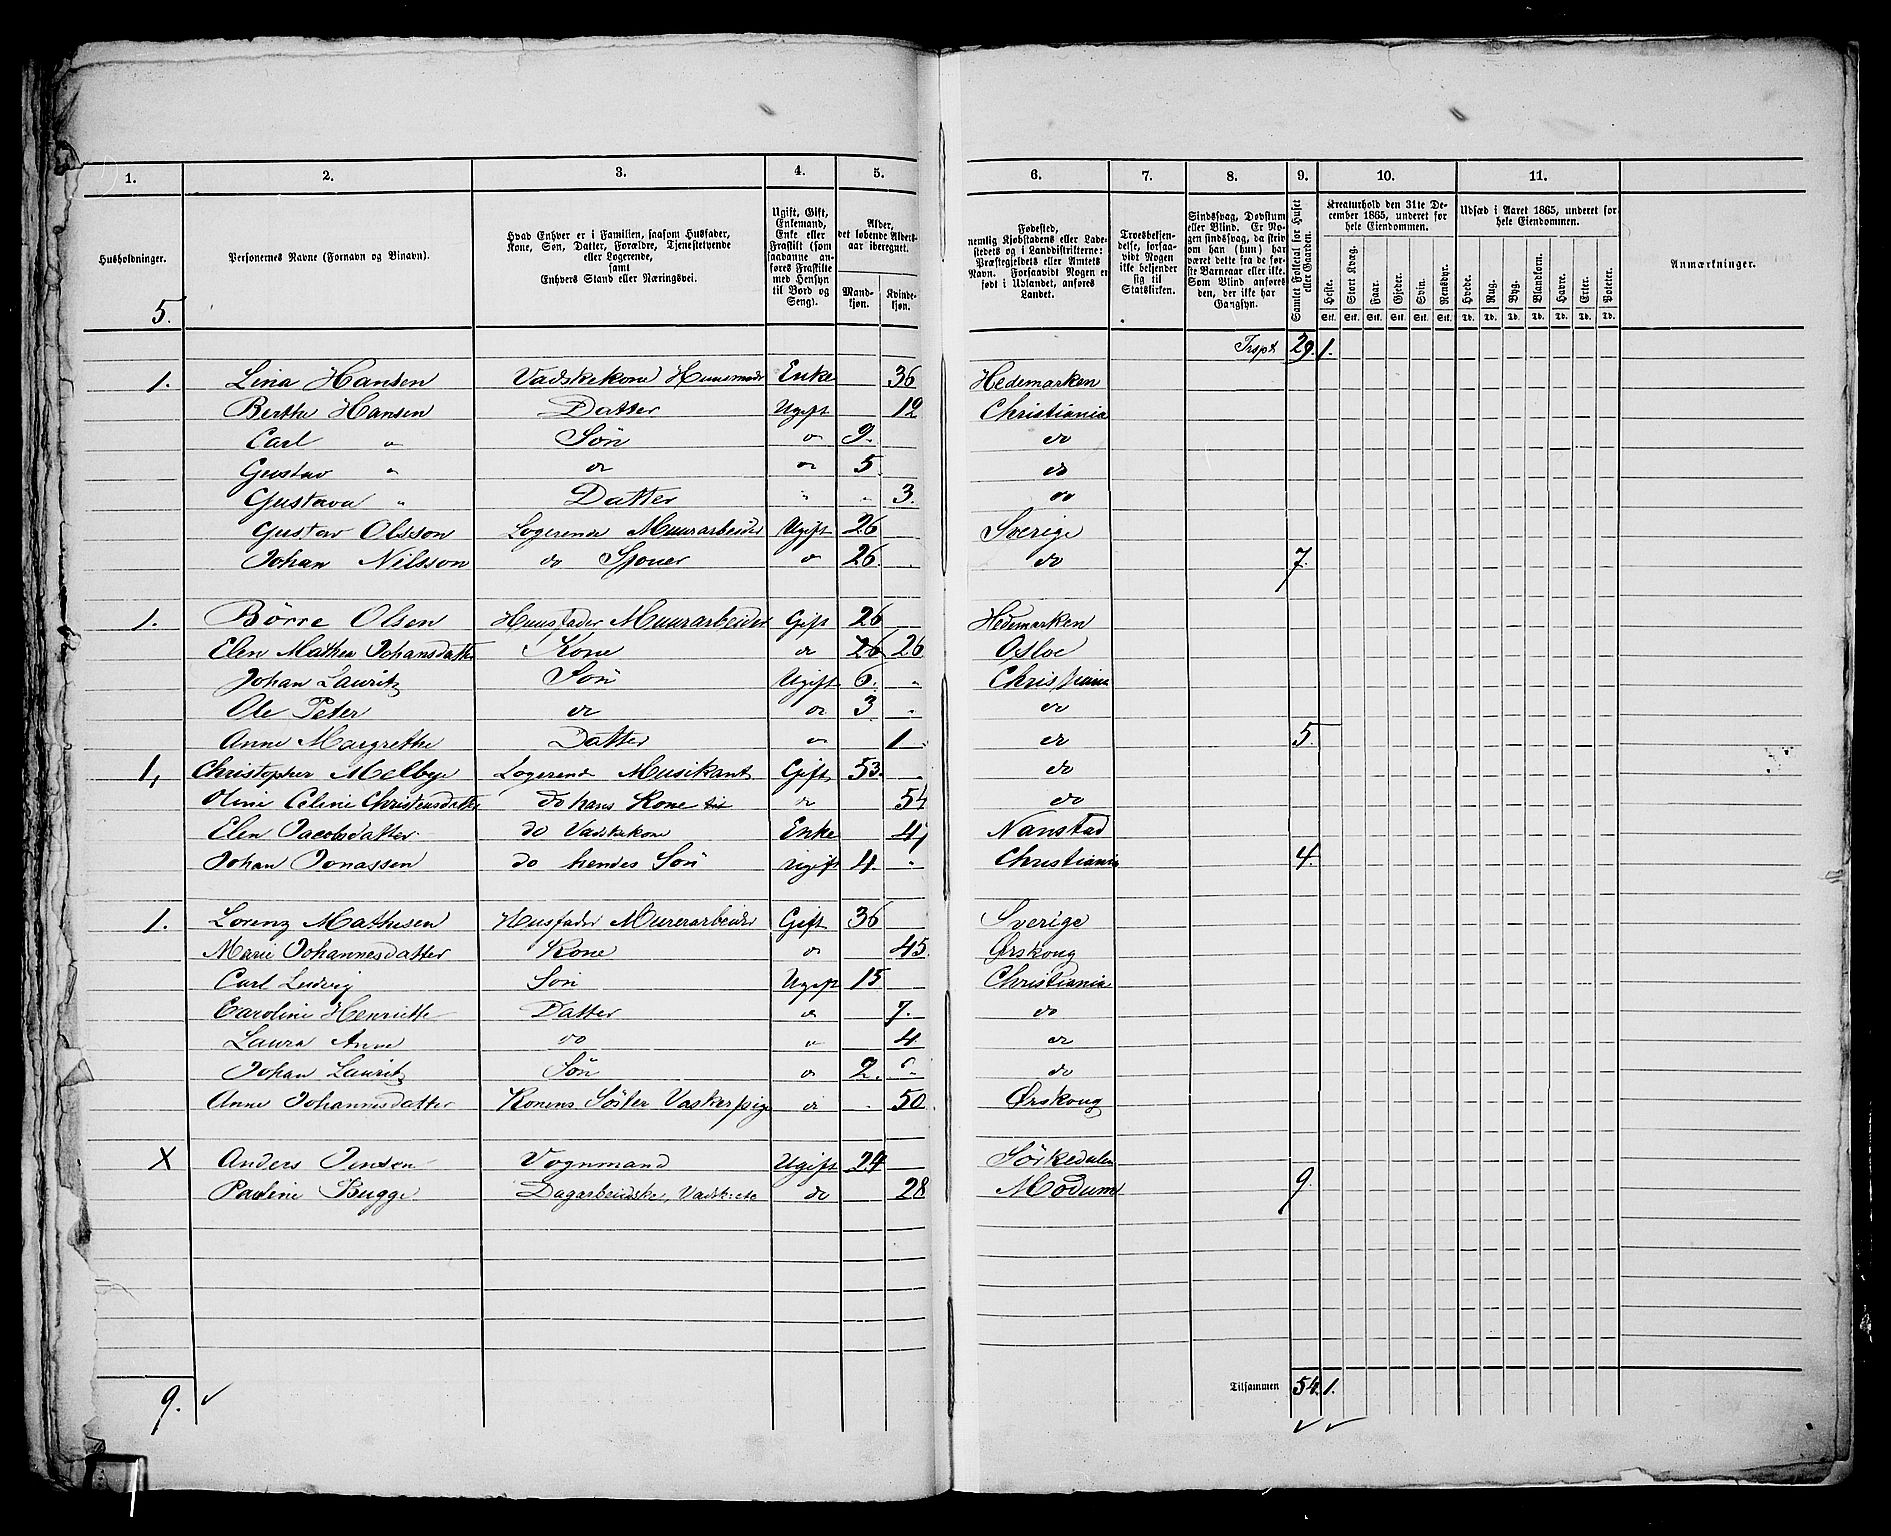 1. 2. 3. 4. 5. 6. 7. 8. 9. 10. 11.
Husholdninger.
Personernes Navne (Fornavn og Binavn).
Hvad Enhver er i Familien, saasom Husfader,
Kone, Søn, Datter, Forældre, Tjenestetyende
eller Logerende,
samt
Enhvers Stand eller Næringsvei.
Ugift, Gift,
Enkemand,
Enke eller
Fraskilt (som
saadanne an-
føres Fraskilte
med Hensyn
til Bord og
Seng).
Alder,
det løbende Alders-
aar iberegnet.
Mand-
kjøn.
Kvinde-
kjøn.
Fødested,
nemlig Kjøbstadens eller Lade-
stedets og i Landdistrikterne:
Præstegjeldets eller Amtets
Navn. Forsaavidt Nogen er
født i Udlandet, anføres
Landet.
Troesbekjen-
delse, forsaa-
vidt Nogen
ikke bekjender
sig til
Statskirken.
Sindssvag, Døvstum
eller Blind. Er No-
gen sindssvag, da skriv
om han (hun) har
været dette fra de før-
ste Barneaar eller ikke.
Som Blind anføres
den, der ikke har
Gangsyn.
Samlet Folketal for Huset
eller Gaarden.
Kreaturhold den 31te De-
cember 1865, underet for
hele Eiendommen.
Heste. Stort Kvæg. Faar. Gjeder. Svin. Rensdyr.
Stk. Stk. Stk. Stk. Stk. Stk.
Udsæd i Aaret 1865, underet for
hele Eiendommen.
Hvede. Rug. Byg. Blandkorn. Havre. Erter. Poteter.
Td. Td. Td. Td. Td. Td. Td.
Anmærkninger.
5.
Trspt 29. 1.
1. Lina Hansen Vadskekone Huusmoder Enke 36 Hedemarken
Berthe Hansen Datter Ugift 12 Christiania
Carl " Søn do 9. do
Gustav " do do 5. do
Gustava " Datter " " 3. do
Gustav Olsson Logerende Muurarbeider Ugift 26 Sverige
Johan Nilsson do do 26. do 7.
1. Børre Olsen Huusfader Muurarbeider Gift 26 Hedemarken
Elen Mathea Johansdatter Kone do 26 26 Osloe
Johan Lauritz Søn Ugift 6. " Christiania
Ole Peter do do 3 " do
Anne Margrethe Datter do 1 do 5.
1, Christopher Melbye Logerende Musikant Gift 53. " do
Oline Celine Christensdatter do hans Kone do 54 do
Elen Jacobsdatter do Vadskekone Enke 47 Nanstad
Johan Jonassen do hendes Søn ugift 4. " Christiania 4.
1. Lorenz Mathisen Husfader Murerarbeider Gift 36 Sverige
Marie Johannesdatter Kone do 45. Ørskoug
Carl Ludvig Søn Ugift 15 Christiania
Caroline Henriette Datter do 7. do
Laura Anne do " 4 do
Johan Lauritz Søn do 2. " do
Anne Johannesdatter Konens Søster Vaskerpige do 50. Ørskoug
X Anders Jensen Vognmand Ugift 24 Sørkedalen
Pauline Bugge Dagarbeidske, Vadsk etc do 28 Modum 9.
9. ✓
Tilsammen 54. 1.
✓ ✓